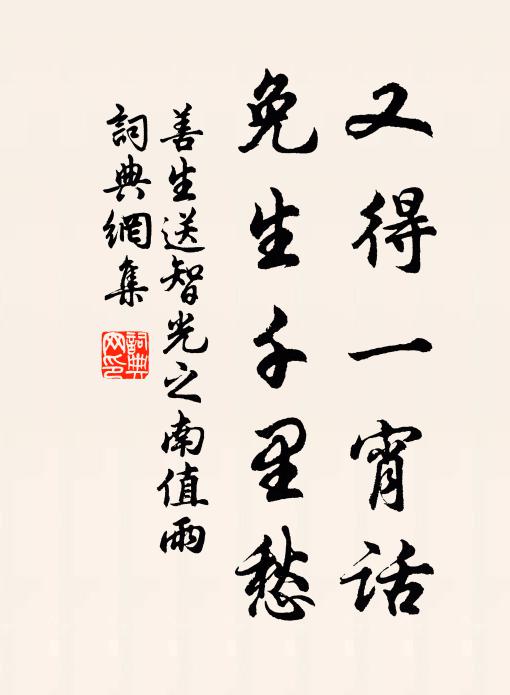 又得一宵話
免生千里愁
善生送智光之南值雨
詞典網集
詞典網印